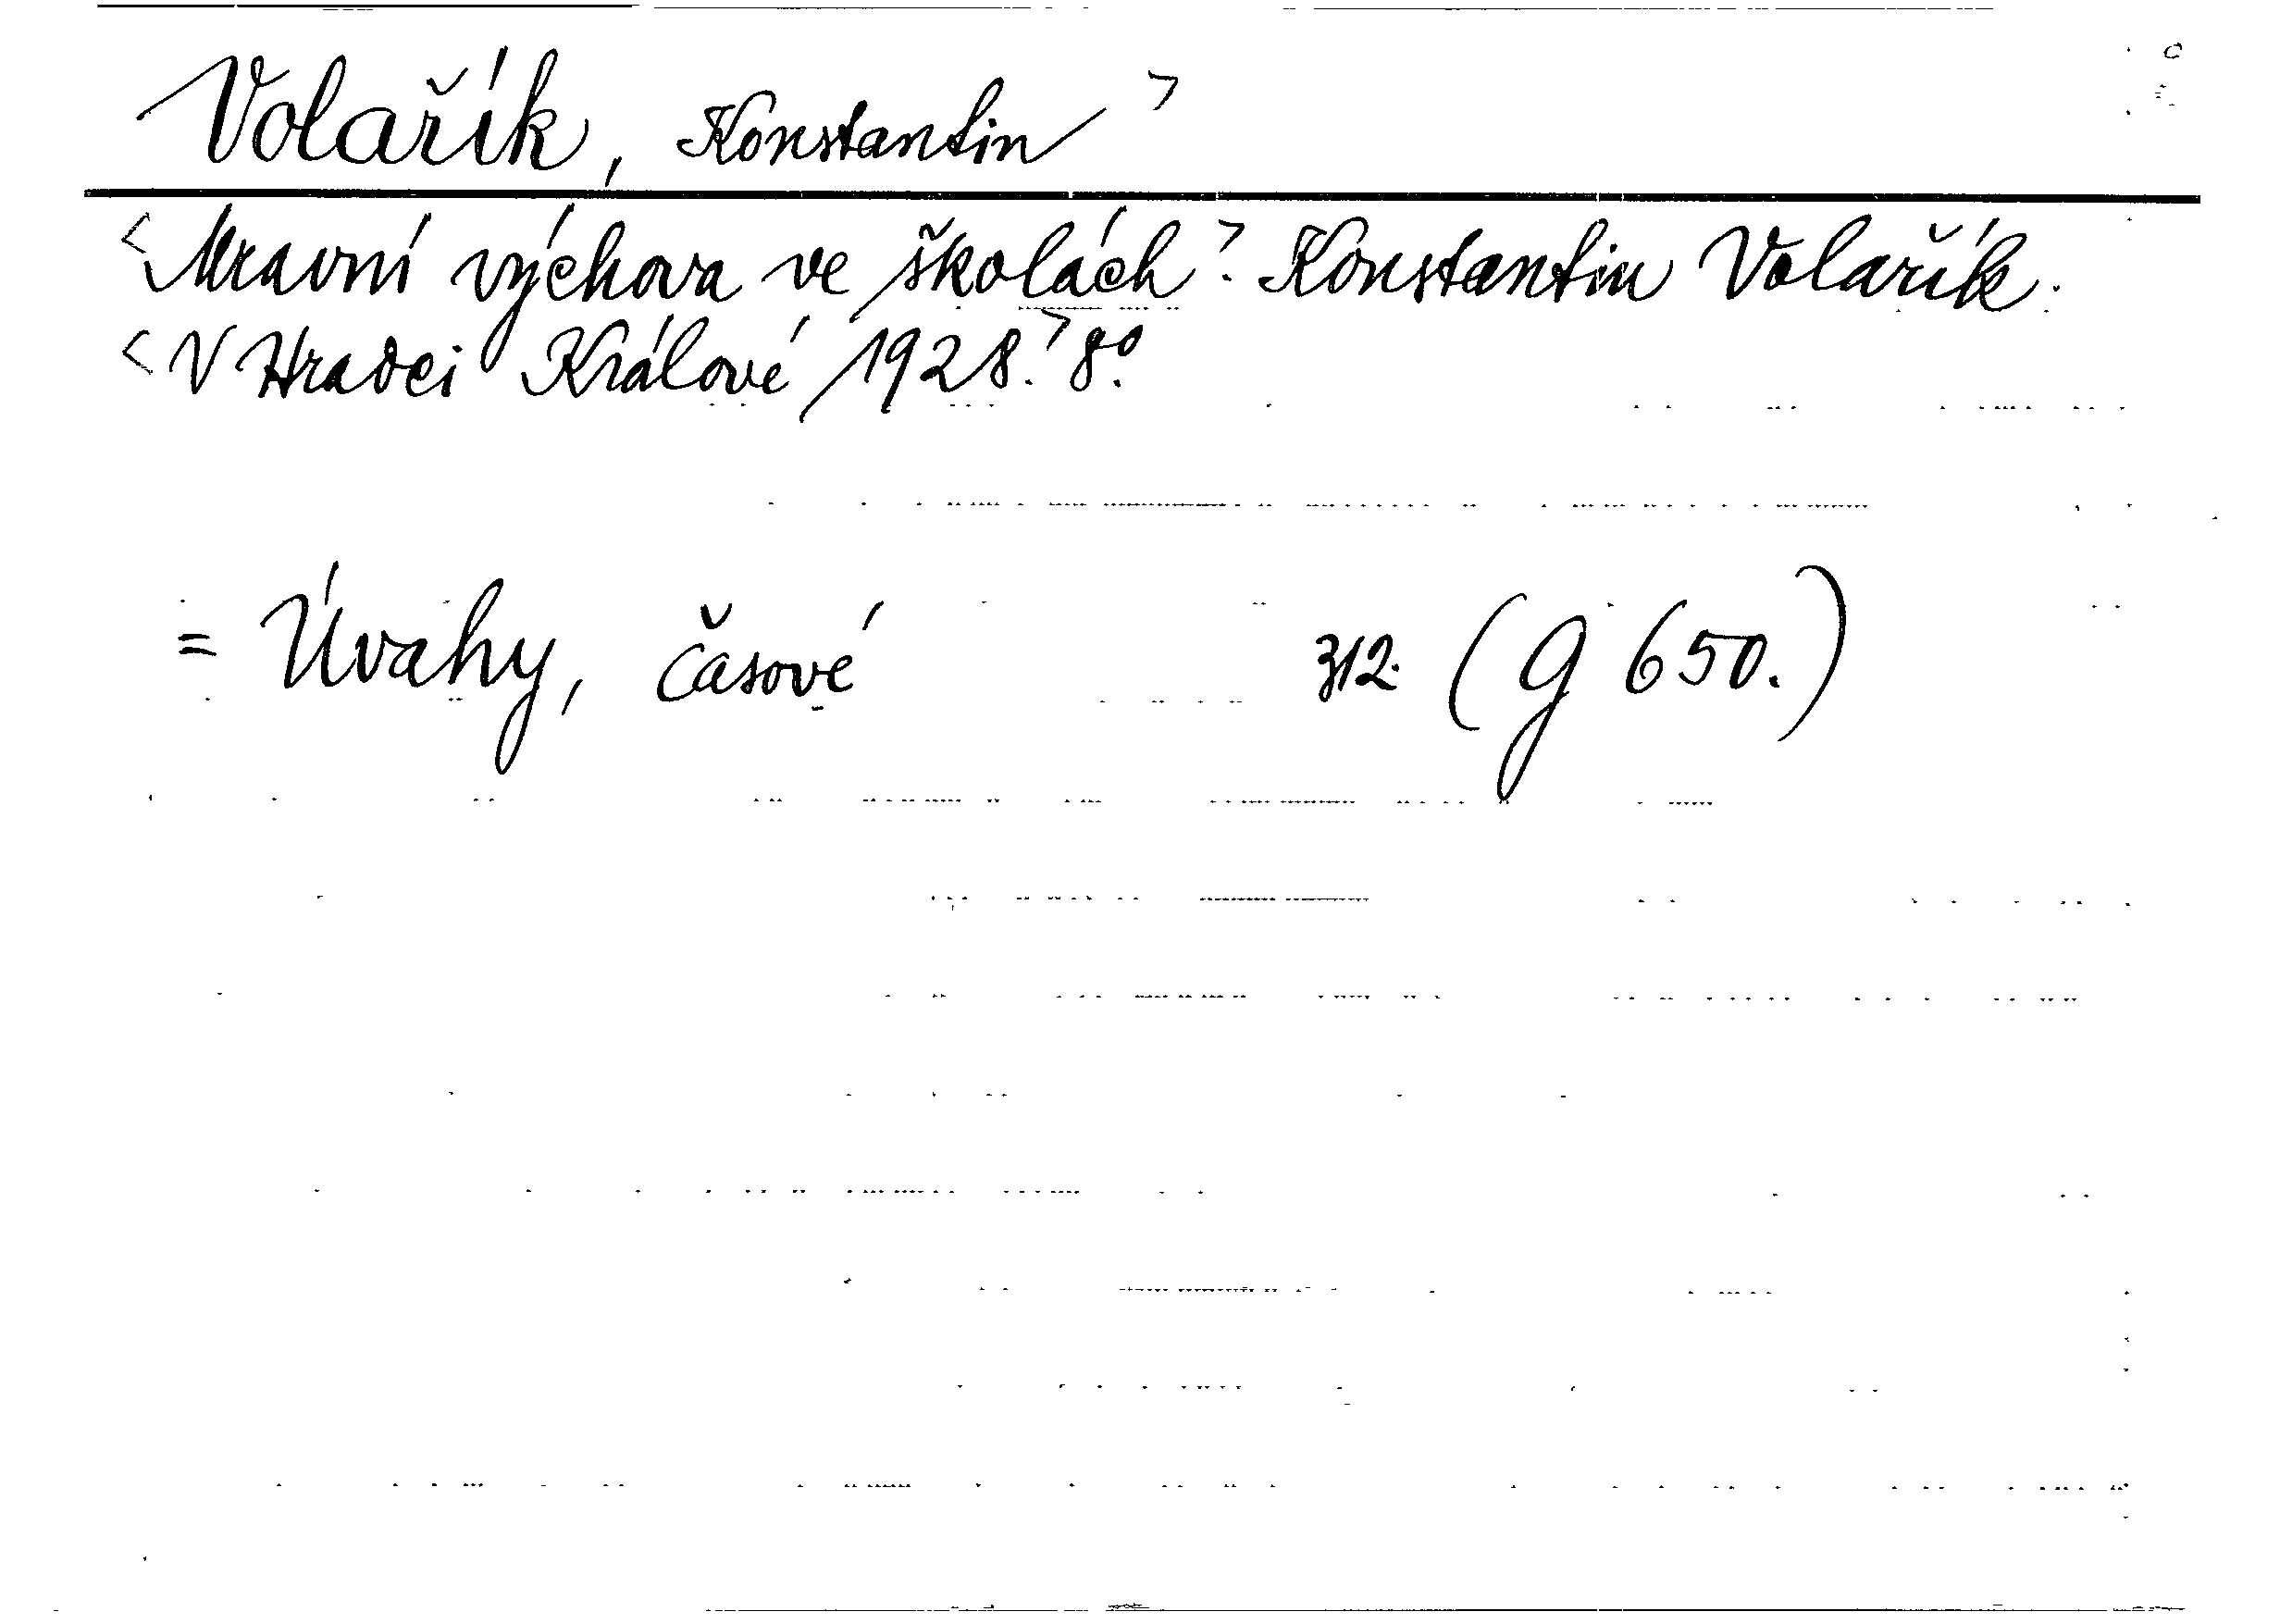 Volařík, Konstantin>
<Mravní výchova ve školách>. Konstantin Volařík.
<V Hradci Králové 1928.> 8°.
= Úvahy, časové 312. (g 650.)